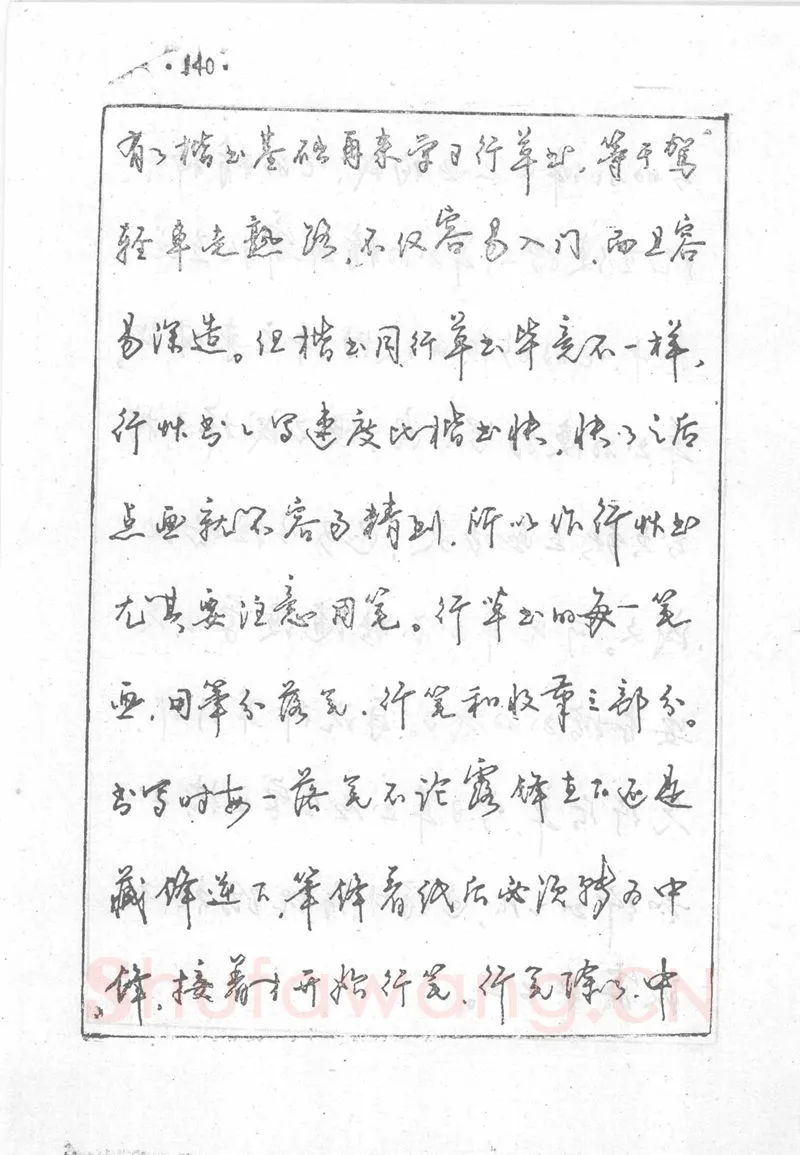 ·140·
有了楷书基础再来学习行草书，等于驾
轻车走熟路，不仅容易入门，而且容
易深造。但楷书同行草书毕竟不一样，
行草书书写速度比楷书快，快了之后
点画就不容易精到，所以作行草书
尤其要注意用笔。行草书的每一笔
画，用笔分落笔、行笔和收笔三部分。
书写时每一落笔不论露锋直下还是
藏锋逆下，笔锋着纸后必须转为中
锋，接着才开始行笔，行笔除了中
Shufawang.CN